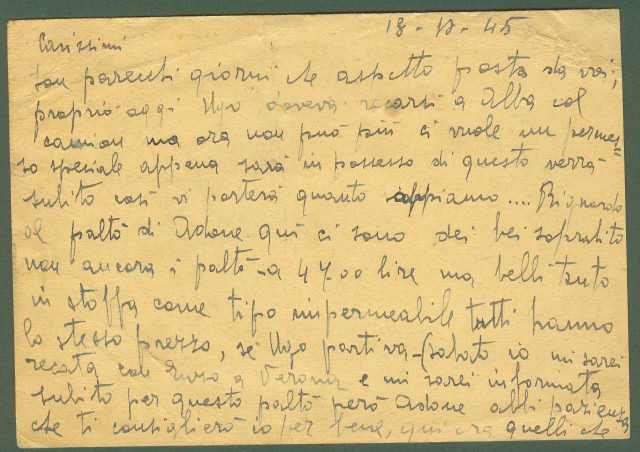 18 - 10 - 45
Carissimi
son parecchi giorni che aspetto posta da voi,
proprio oggi Ugo doveva recarsi a Alba col
camion ma ora non può più ci vuole un permes=
so speciale appena sarà in possesso di questo verrà
subito così vi porterà quanto appiamo.... Riguardo
al paltò di Adone qui ci sono dei bei soprabito
non ancora i paltò - a 4700 lire ma belli tanto
in stoffa come tipo impermeabile tutti hanno
lo stesso prezzo, se Ugo partiva - (sabato io mi sarei
recata con Enzo a Verona e mi sarei informata
subito per questo paltò però Adone abbi pazienza
che ti consiglierò io per bene, qui ora quelli che